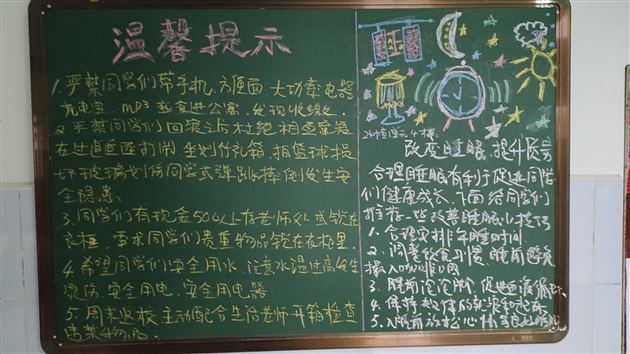 温馨提示
1.严禁同学们带手机.方便面.大功率电器
充电宝.mp3 等食进公寓.发现收缴.
2.严禁同学们回寝之后杜绝相互串寝
在过道追逐打闹
坏玻璃划伤同学或弹跳摔倒发生安
全隐患.
3.同学们有现金50以上存老师处或锁在
衣柜.要求同学们贵重物品锁在衣柜里.
4.希望同学们安全用水.注意水温过高发生
烫伤.安全用电.安全用电器
5.周末返校.主动配合生活老师开箱检查
4楼
改变睡眠.提升
合理睡眠有利于促进同学
们健康成长.下面给同学们
推荐一些改善睡眠小技巧
1.合理安排午睡时间.
2.调整饮食习惯.睡前避免
摄入
3.睡前泡泡脚.促进血液循环
4.保持规律的
5.入睡前放松心情